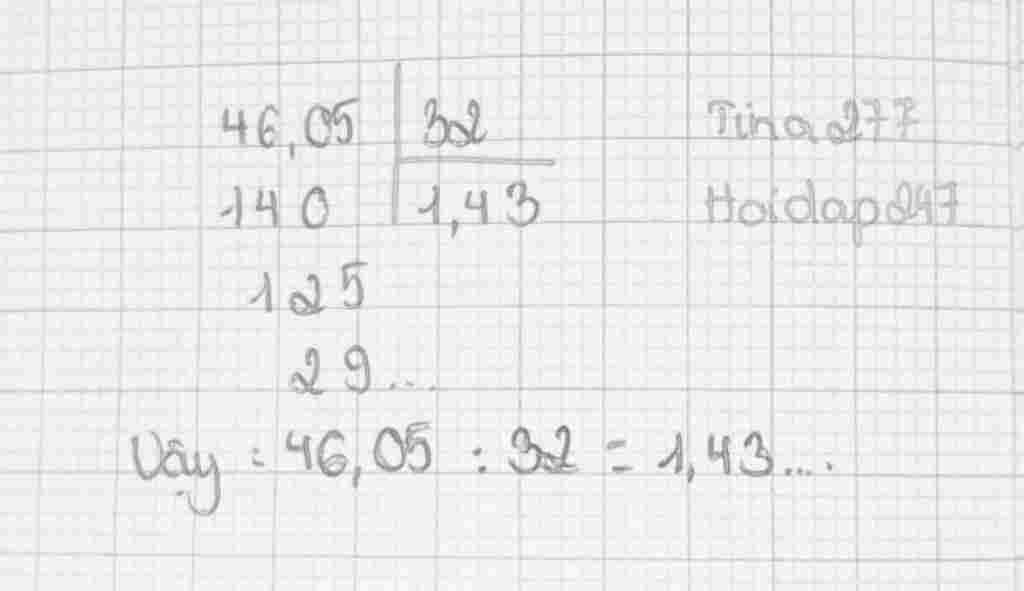 46,05 32 Tina277
140 1,43 Hoidap247
125
29...
Vậy : 46,05 : 32 = 1,43....